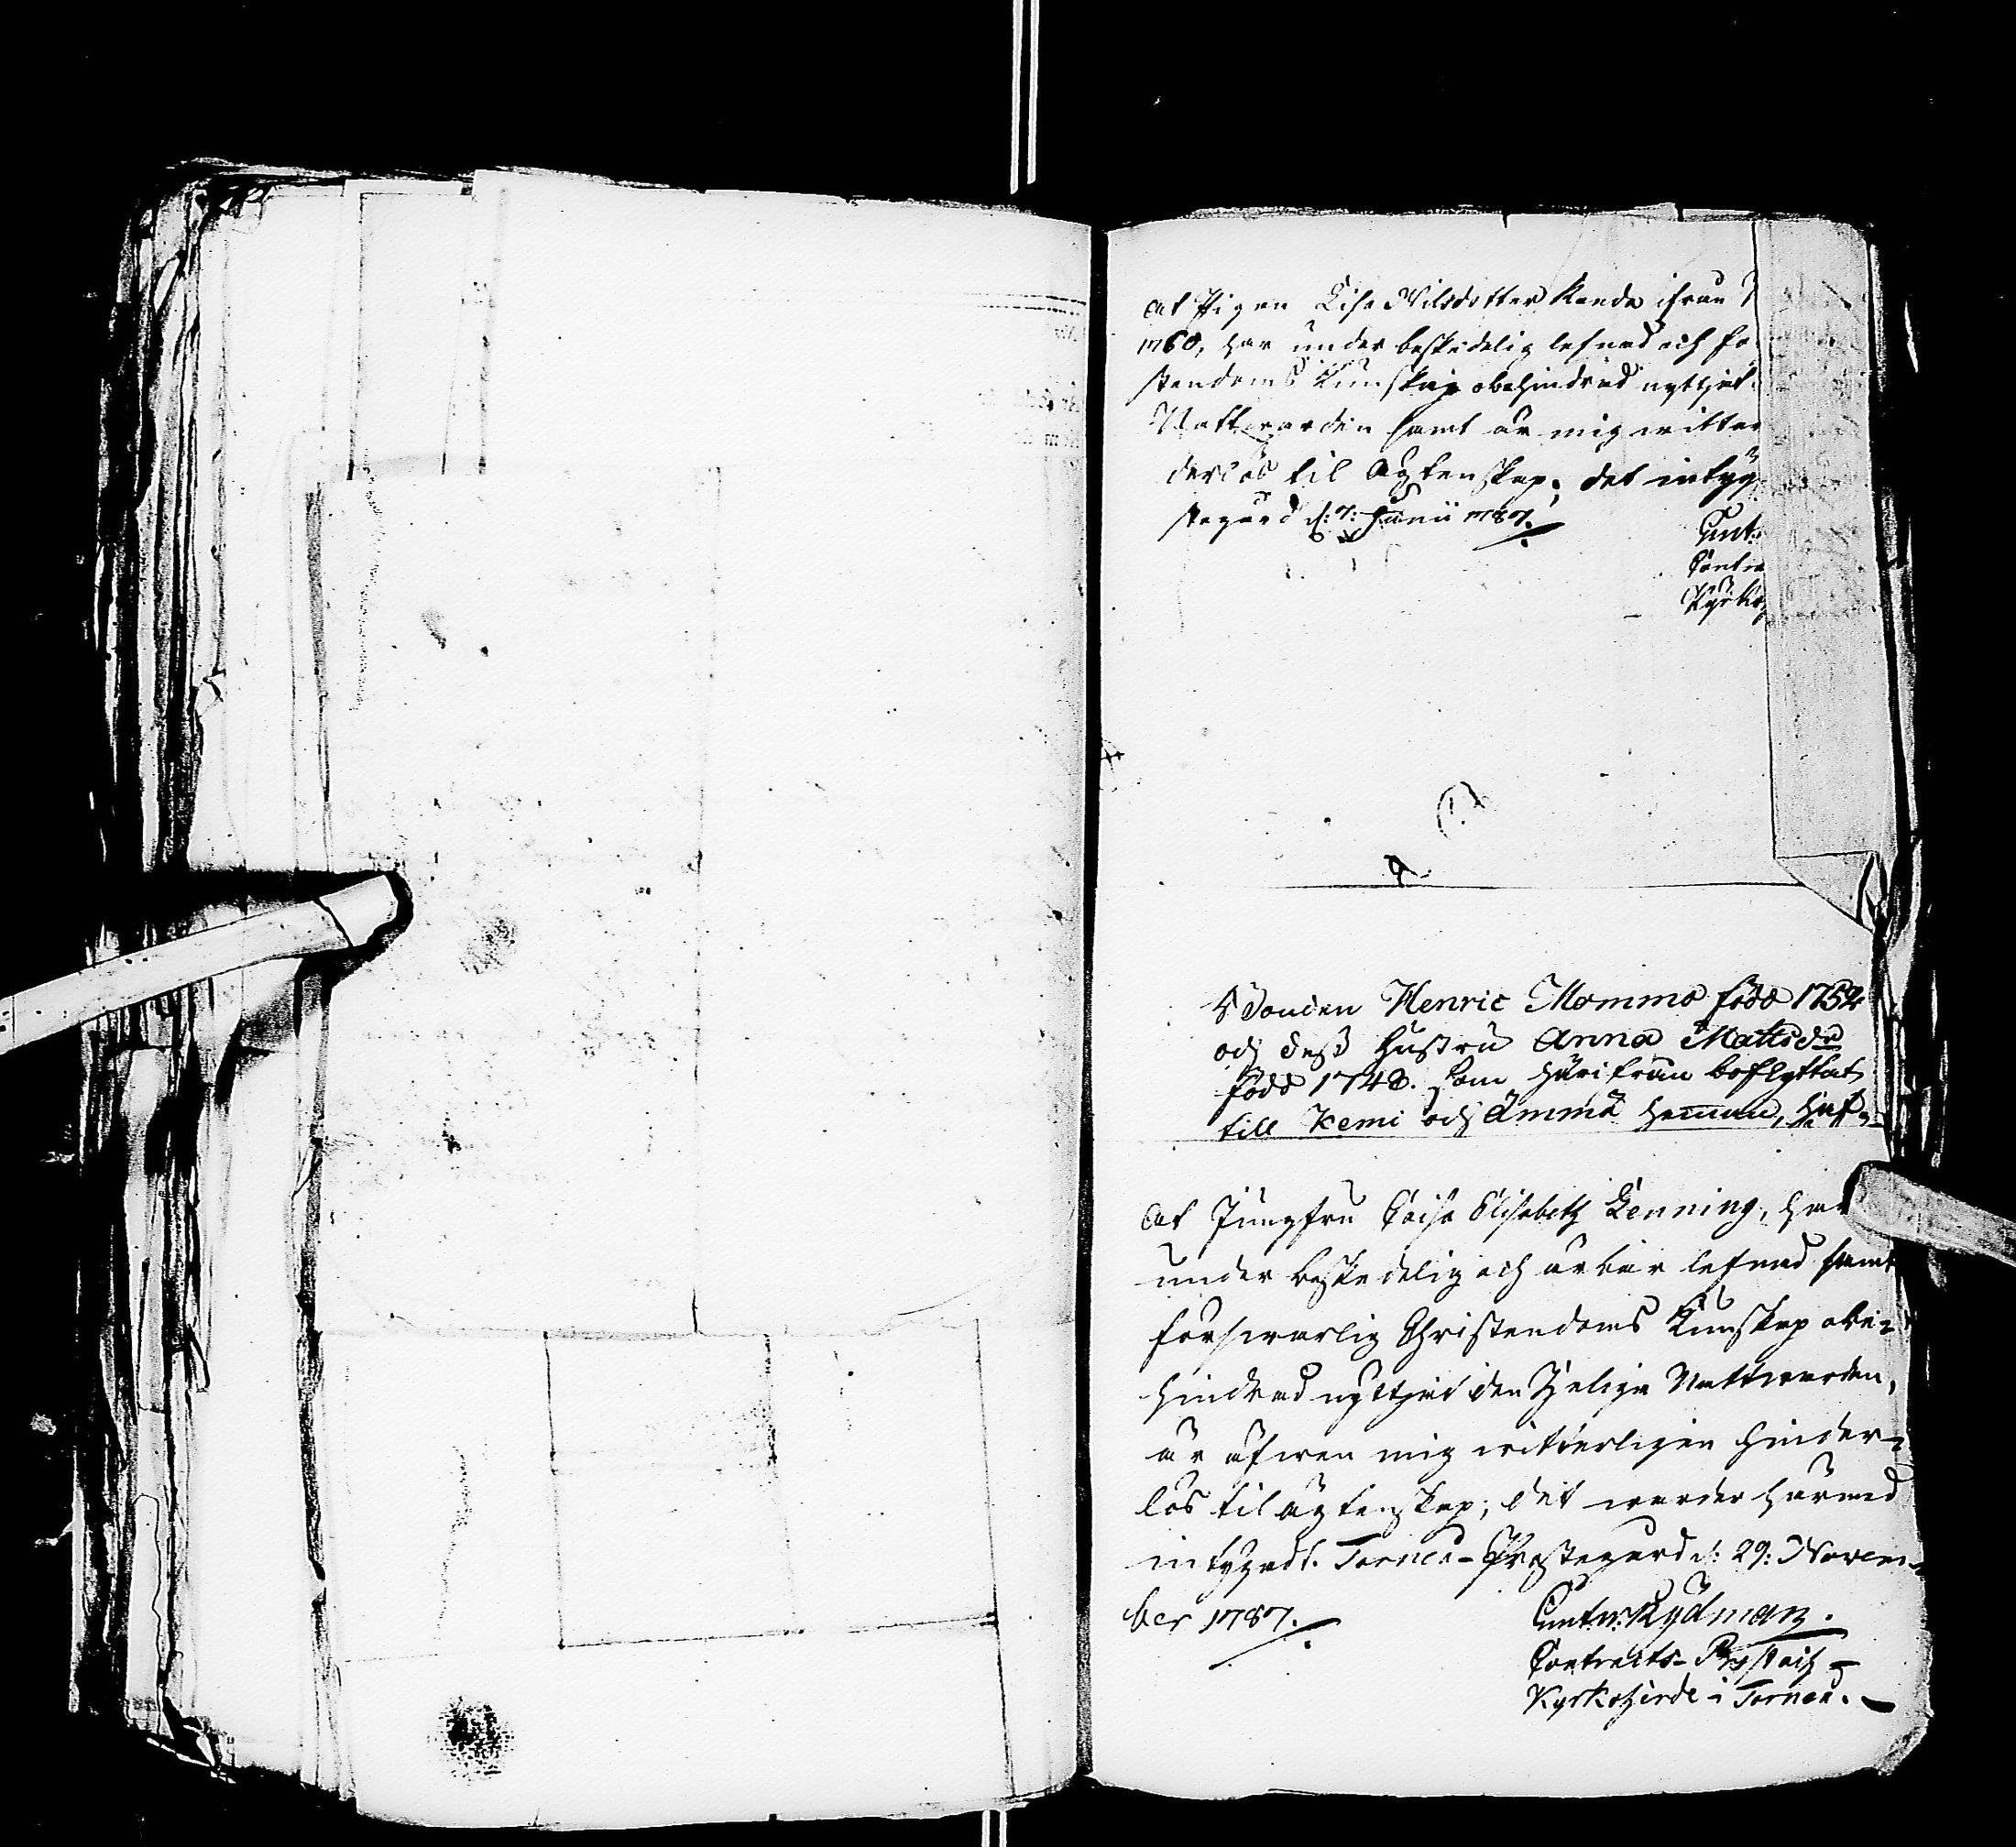 At Pigan Lisa Nilsdotter Kanda ifrån
1760, har under beskedelig lefnad och fö
stendoms Kunskap obehindrad nyttjat
Nattwarden samt är mig witter
derlös til Ägtenskap; det intyg
stegård d: 7: Junii 1787.
Cunt:
Contra
Kyrko
Bonden Henric Mommo född 1752
och dess Hustru Anna Mattsdr
född 1748. som härifrån bortflyttat
till Kemi och Ämmä hemman, haf-
At Jungfru Caisa Elisabeth Lenning, har
under beskedelig och ärbar lefnad samt
förswarlig Christendoms Kunskap obe-
hindrad nyttjat den Helige Nattwarden,
är äfwen mig witterligen hinder-
lös til Ägtenskap; det warder härmed
intygadt. Torneå-Prästegård d: 29: Novem-
ber 1787.
Cuntw: Rydman.
Contracts-Prost och
Kyrkoherde i Torneå.